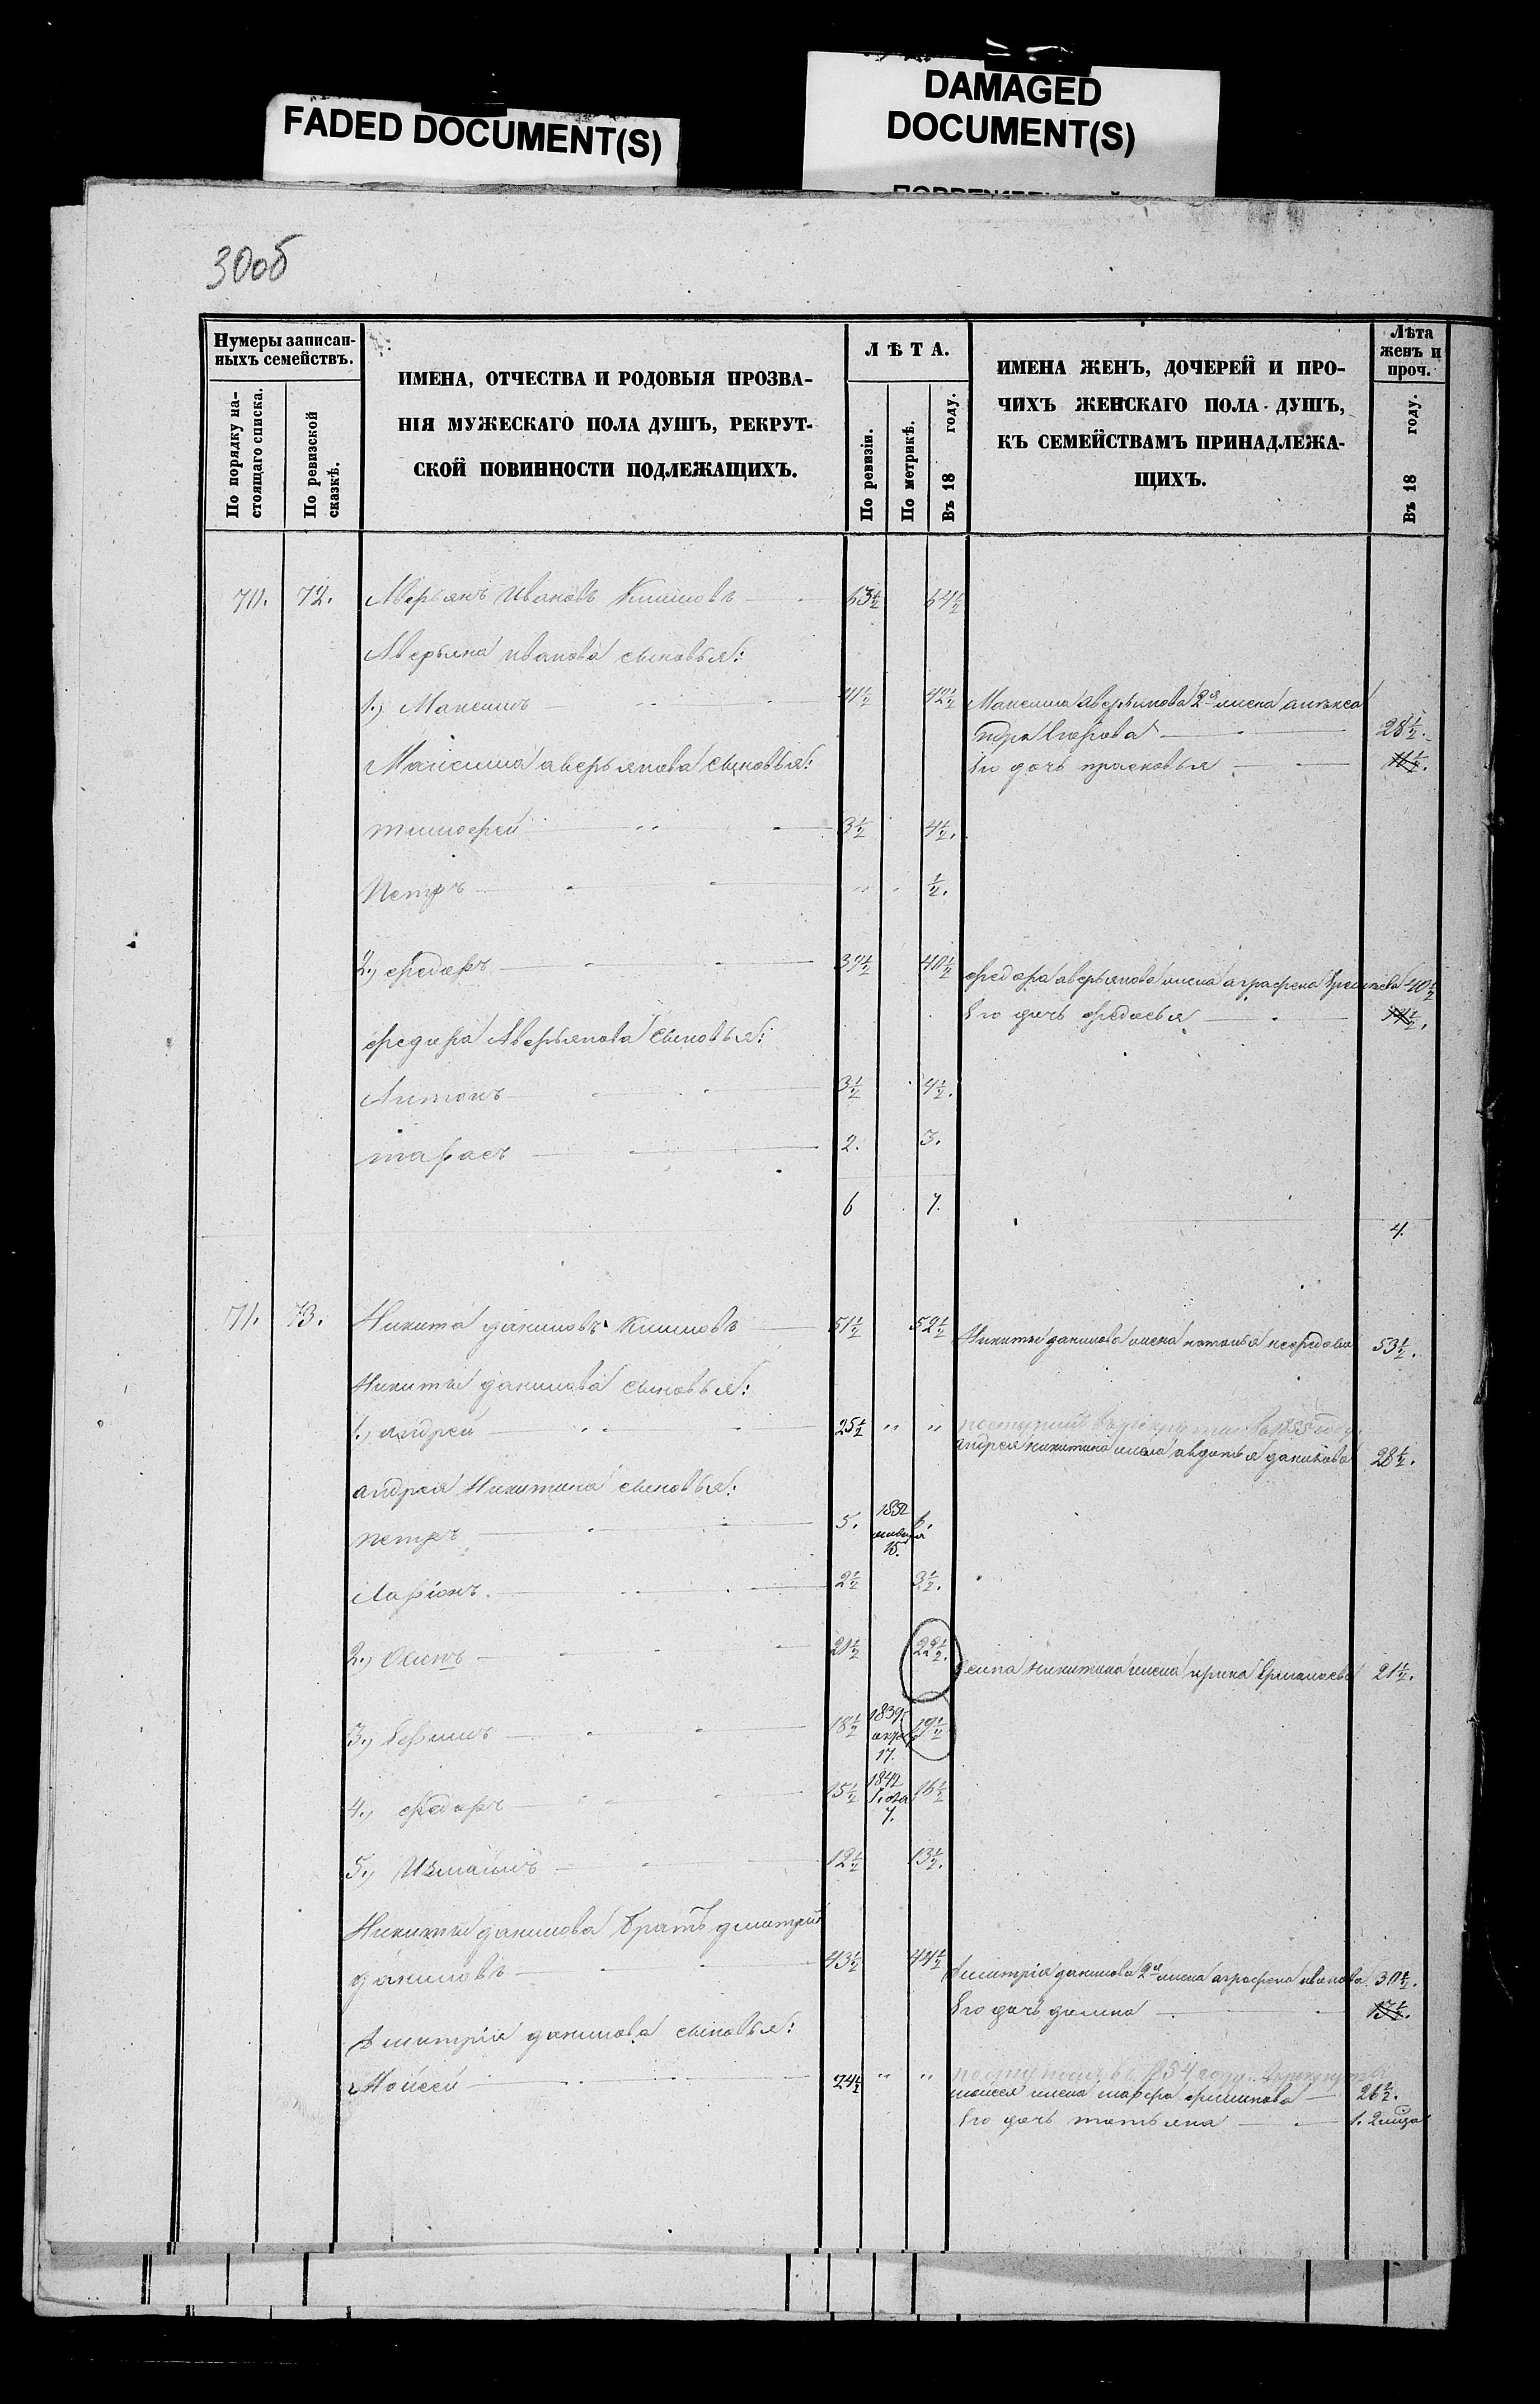 FADED DOCUMENT(S)
DAMAGED
DOCUMENT(S)
30об
Нумеры записан-
ныхъ семействъ.
По порядку на-
стоящаго списка.
По ревизской
сказкѣ.
ИМЕНА, ОТЧЕСТВА И РОДОВЫЯ ПРОЗВА-
НІЯ МУЖЕСКАГО ПОЛА ДУШЪ, РЕКРУТ-
СКОЙ ПОВИННОСТИ ПОДЛЕЖАЩИХЪ.
ЛѢТА.
По ревизіи.
По метрикѣ.
Въ 18 году.
ИМЕНА ЖЕНЪ, ДОЧЕРЕЙ И ПРО-
ЧИХЪ ЖЕНСКАГО ПОЛА ДУШЪ,
КЪ СЕМЕЙСТВАМЪ ПРИНАДЛЕЖА-
ЩИХЪ.
Лѣта
женъ и
проч.
Въ 18 году.
70. 72. Аверьянъ Ивановъ 63½ 64½
Аверьяна Иванова сыновья:
1.) Максимъ 41½ 42½ Максима Аверьянова 2я жена Алекса
ндра Егорова 28½.
Максима Аверьянова сыновья: Его дочь Прасковья
Тимофей 3½ 4½.
Петръ " " ½.
2.) Федоръ 39½ 40½ Федора Аверьянова жена Аграфена 40½
Его дочь Федосья
Федора Аверьянова сыновья:
Антонъ 3½ 4½.
Тарасъ 2. 3.
6 7.
4.
71. 73. Никита Даниловъ 51½ 52½ Никиты Данилова жена Наталья 53½.
Никиты Данилова сыновья:
1.) Андрей 25½ " " поступилъ
Андрея Никитина жена Авдотья Данилова 28½.
Андрея Никитина сыновья:
Петръ 5. 1852 января 15. 6.
Ларіонъ 2½ 3½.
2.) Осипъ 21½ 22½. Осипа Никитина жена Ирина Ермолаева 21½.
3.) Ефимъ 18½ 1839 17. 19½
4.) Федоръ 15½ 1842 7. 16½
5.) Измаилъ 12½ 13½.
Никиты Данилова братъ Дмитрій
Даниловъ 43½ 44½ Дмитрія Данилова 2я жена Аграфена Иванова 30½.
Его дочь
Дмитрія Данилова сыновья:
Моисей 24½ " " поступилъ въ 1854 году
Моисея жена Марфа 26½.
Его дочь Татьяна 1.